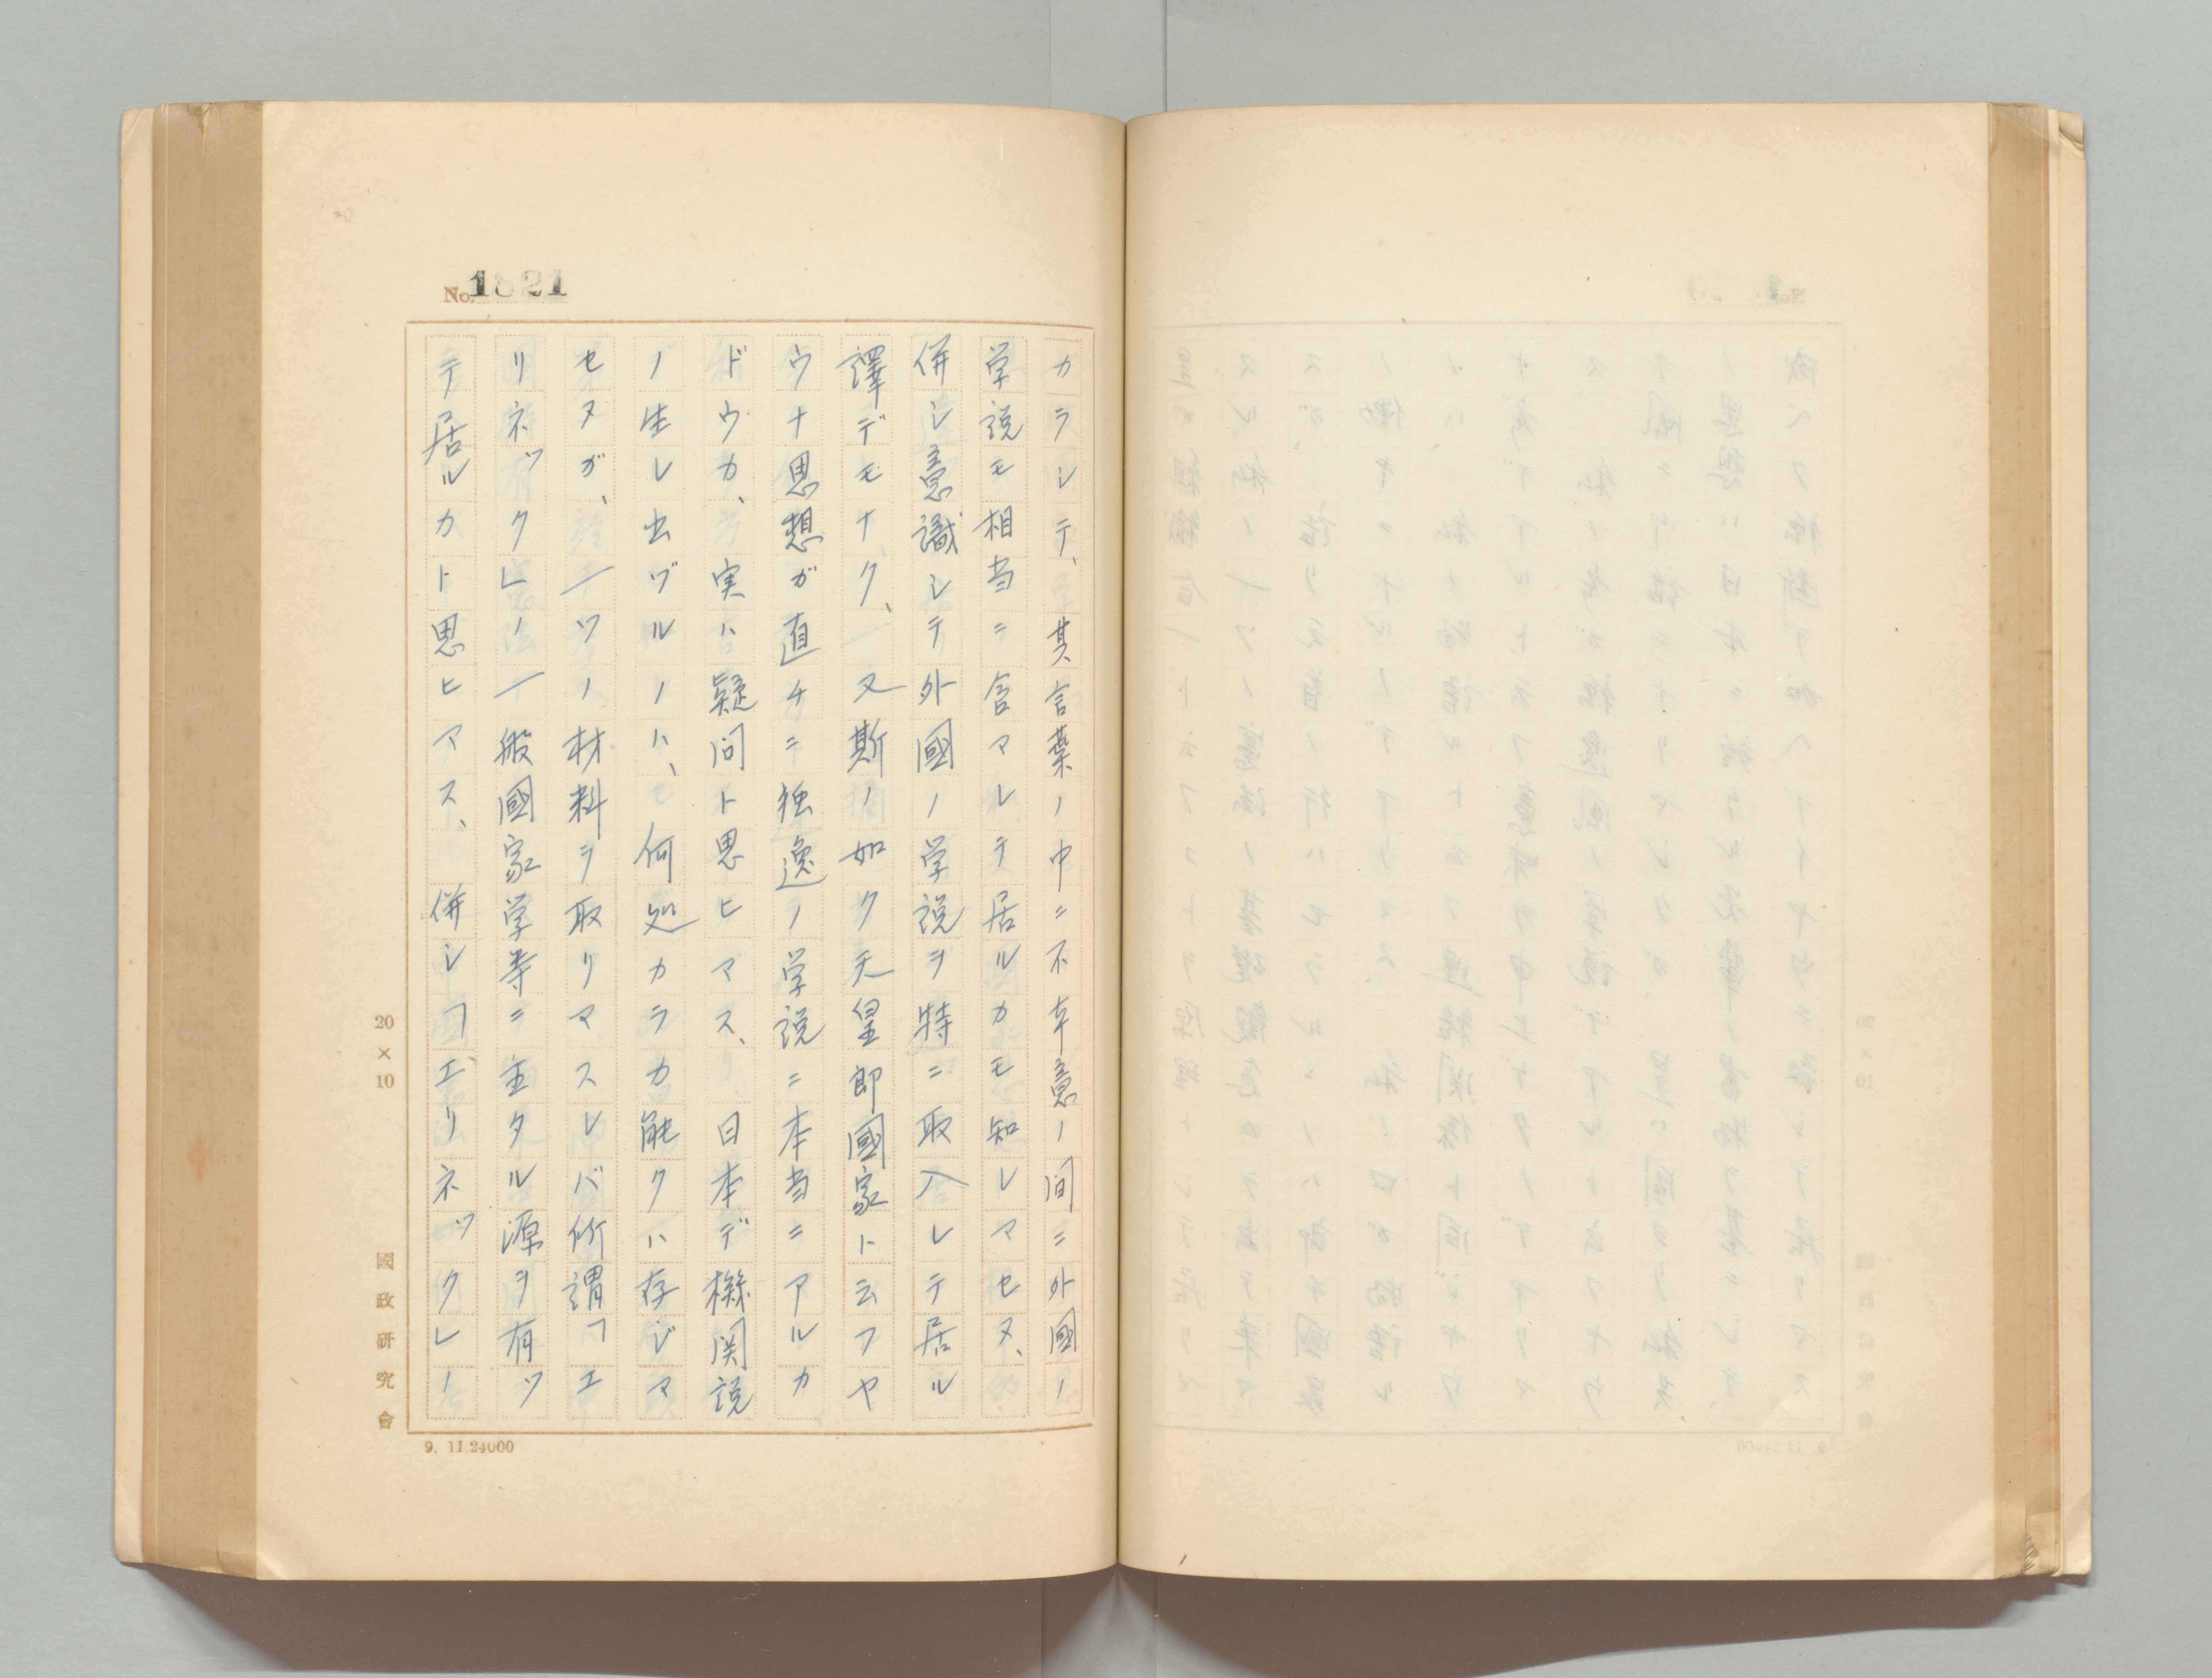 No. 1821
カラシテ、其言葉ノ中ニ不本意ノ間ニ外國ノ
学説モ相当ニ含マレテ居ルカモ知レマセヌ、
併シ意識シテ外國ノ学説ヲ特ニ取入レテ居ル
譯デモナク、又斯ノ如ク天皇即國家ト云フヤ
ウナ思想ガ直チニ独逸ノ学説ニ本当ニアルカ
ドウカ、実ハ疑問ト思ヒマス、日本デ機関説
ノ生レ出ヅルノハ、何処カラカ能クハ存ジマ
セヌガ、一ツノ材料ヲ取リマスレバ所謂「エ
リネツクレ」ノ一般國家学等ニ主タル源ヲ有ツ
テ居ルカト思ヒマス、併シ「エリネツクレ」
20×10
國政研究會
9. 11.24000